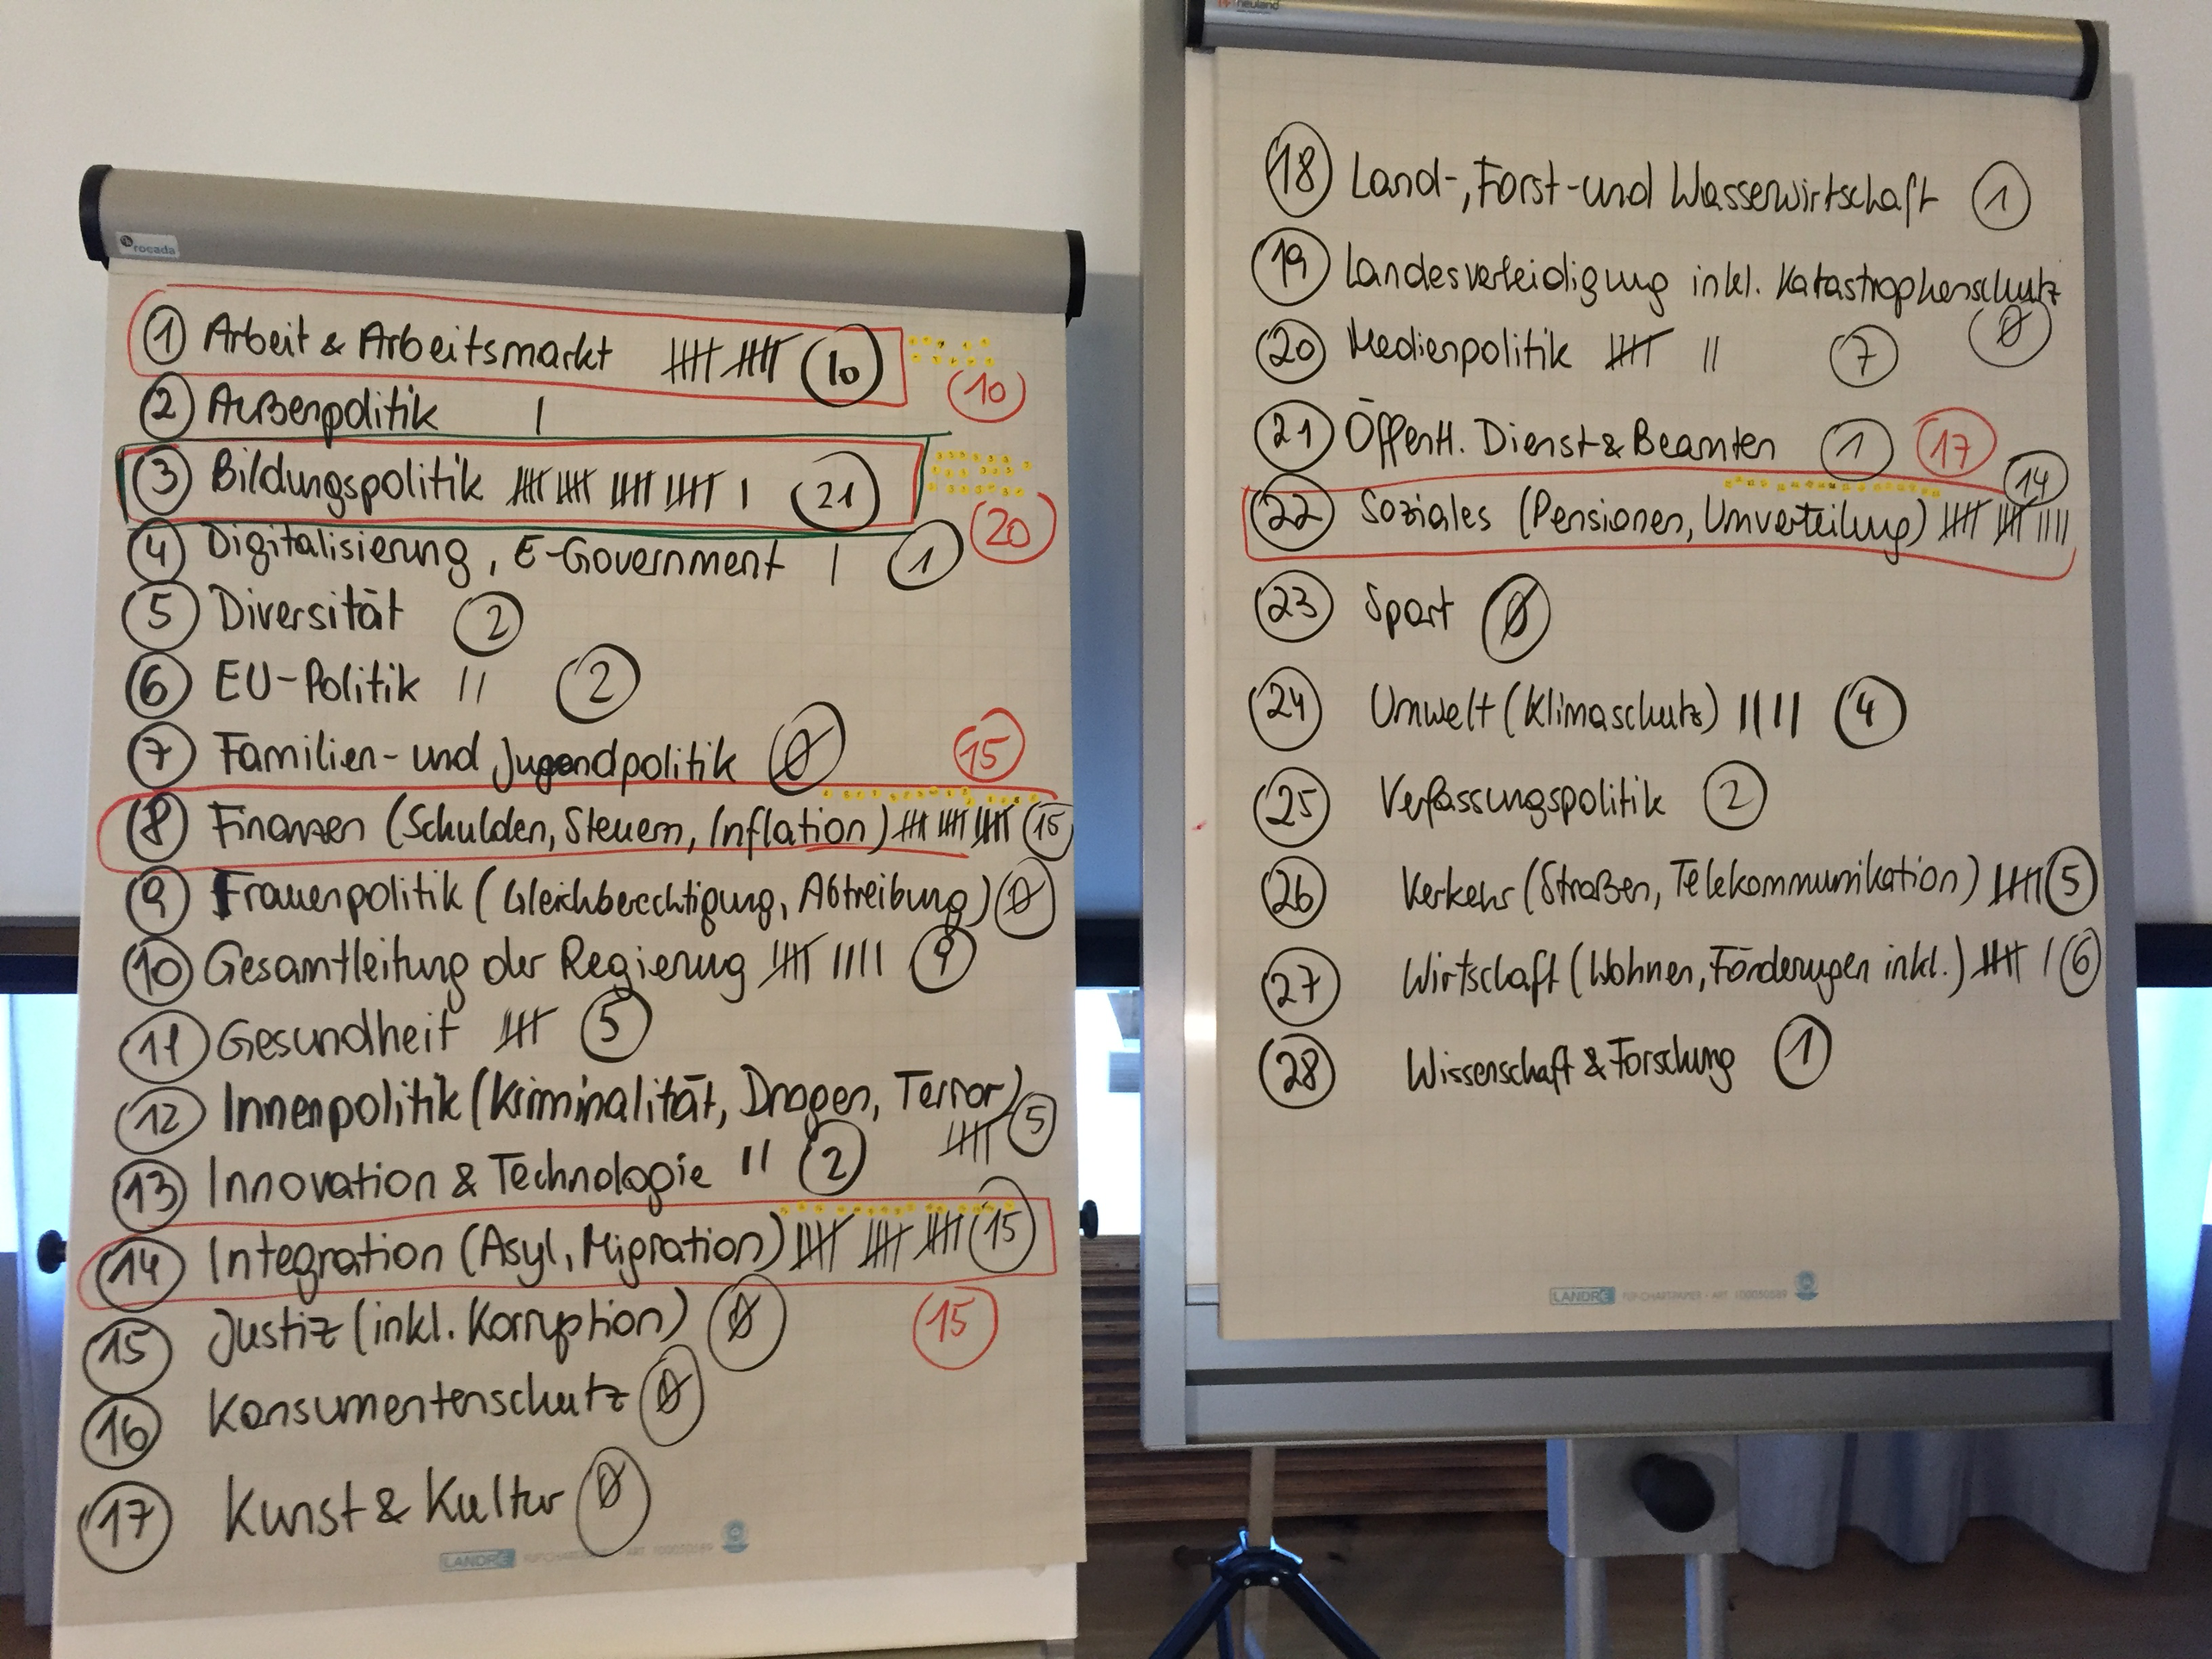 rocada
① Arbeit & Arbeitsmarkt |||| |||| 10
10
② Außenpolitik |
③ Bildungspolitik |||| |||| |||| |||| | 21
20
④ Digitalisierung, E-Government | 1
⑤ Diversität 2
⑥ EU-Politik || 2
⑦ Familien- und Jugendpolitik 0
15
⑧ Finanzen (Schulden, Steuern, Inflation) |||| |||| |||| 15
⑨ Frauenpolitik (Gleichberechtigung, Abtreibung) 0
⑩ Gesamtleitung der Regierung |||| |||| 9
⑪ Gesundheit |||| 5
⑫ Innenpolitik (Kriminalität, Drogen, Terror)
|||| 5
⑬ Innovation & Technologie || 2
⑭ Integration (Asyl, Migration) |||| |||| |||| 15
⑮ Justiz (inkl. Korruption) 0
15
⑯ Konsumentenschutz 0
⑰ Kunst & Kultur 0
LANDRÉ
neuland
⑱ Land-, Forst- und Wasserwirtschaft 1
⑲ Landesverteidigung inkl. Katastrophenschutz
0
⑳ Medienpolitik |||| || 7
㉑ Öffentl. Dienst & Beamten 1
17
14
㉒ Soziales (Pensionen, Umverteilung) |||| |||| ||||
㉓ Sport 0
㉔ Umwelt (Klimaschutz) |||| 4
㉕ Verfassungspolitik 2
㉖ Verkehr (Straßen, Telekommunikation) |||| 5
㉗ Wirtschaft (Wohnen, Förderungen inkl.) |||| | 6
㉘ Wissenschaft & Forschung 1
LANDRÉ FLIPCHARTPAPIER · ART. 100050589